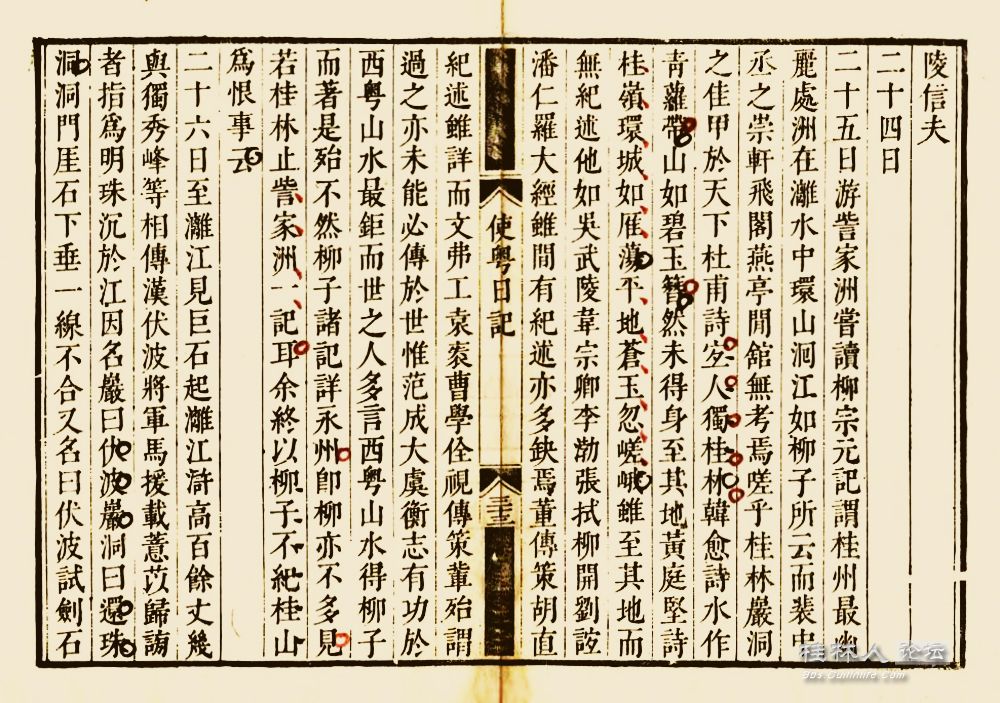 陵信夫
二十四日
二十五日游訾家洲嘗讀柳宗元記謂桂州最幽
麗處洲在灕水中環山洄江如柳子所云而裴中
丞之崇軒飛閣燕亭閒舘無考焉嗟乎桂林巖洞
之佳甲於天下杜甫詩宐人獨桂林韓愈詩水作
青蘿帶山如碧玉簪然未得身至其地黃庭堅詩
桂嶺環城如雁蕩平地蒼玉忽嵯峨雖至其地而
無紀述他如吳武陵韋宗卿李渤張拭柳開劉誼
潘仁羅大經雖間有紀述亦多缺焉董傳策胡直
使粵日記
三十三
紀述雖詳而文弗工袁袠曹學佺視傳策軰殆謂
過之亦未能必傳於世惟范成大虞衡志有功於
西粵山水最鉅而世之人多言西粵山水得柳子
而著是殆不然柳子諸記詳永州卽柳亦不多見
若桂林止訾家洲一記耳余終以柳子不紀桂山
爲恨事云
二十六日至灕江見巨石起灕江滸高百餘丈幾
與獨秀峰等相傳漢伏波將軍馬援載薏苡歸謗
者指爲明珠沉於江因名巖曰伏波巖洞曰還珠
洞洞門厓石下垂一線不合又名曰伏波試劍石
桂林人 论坛